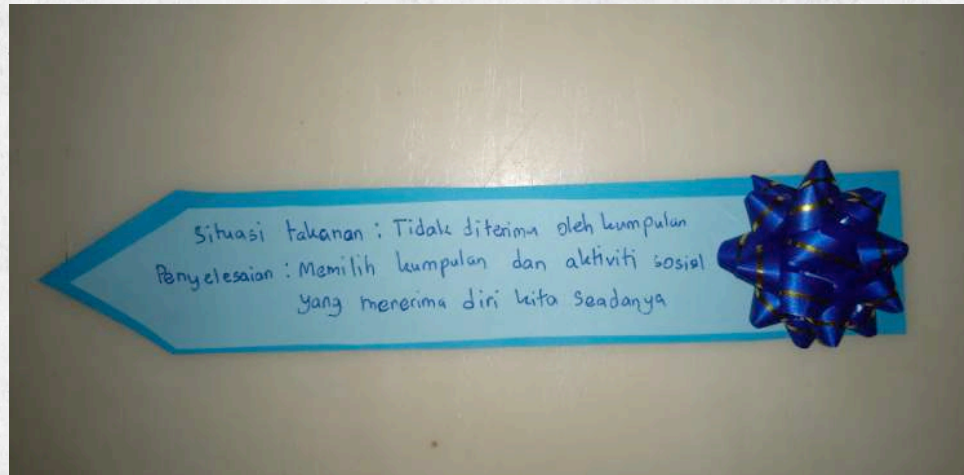 Situasi takanan : Tidak diterima oleh kumpulan
Penyelesaian : Memilih kumpulan dan aktiviti sosial
yang menerima diri kita seadanya